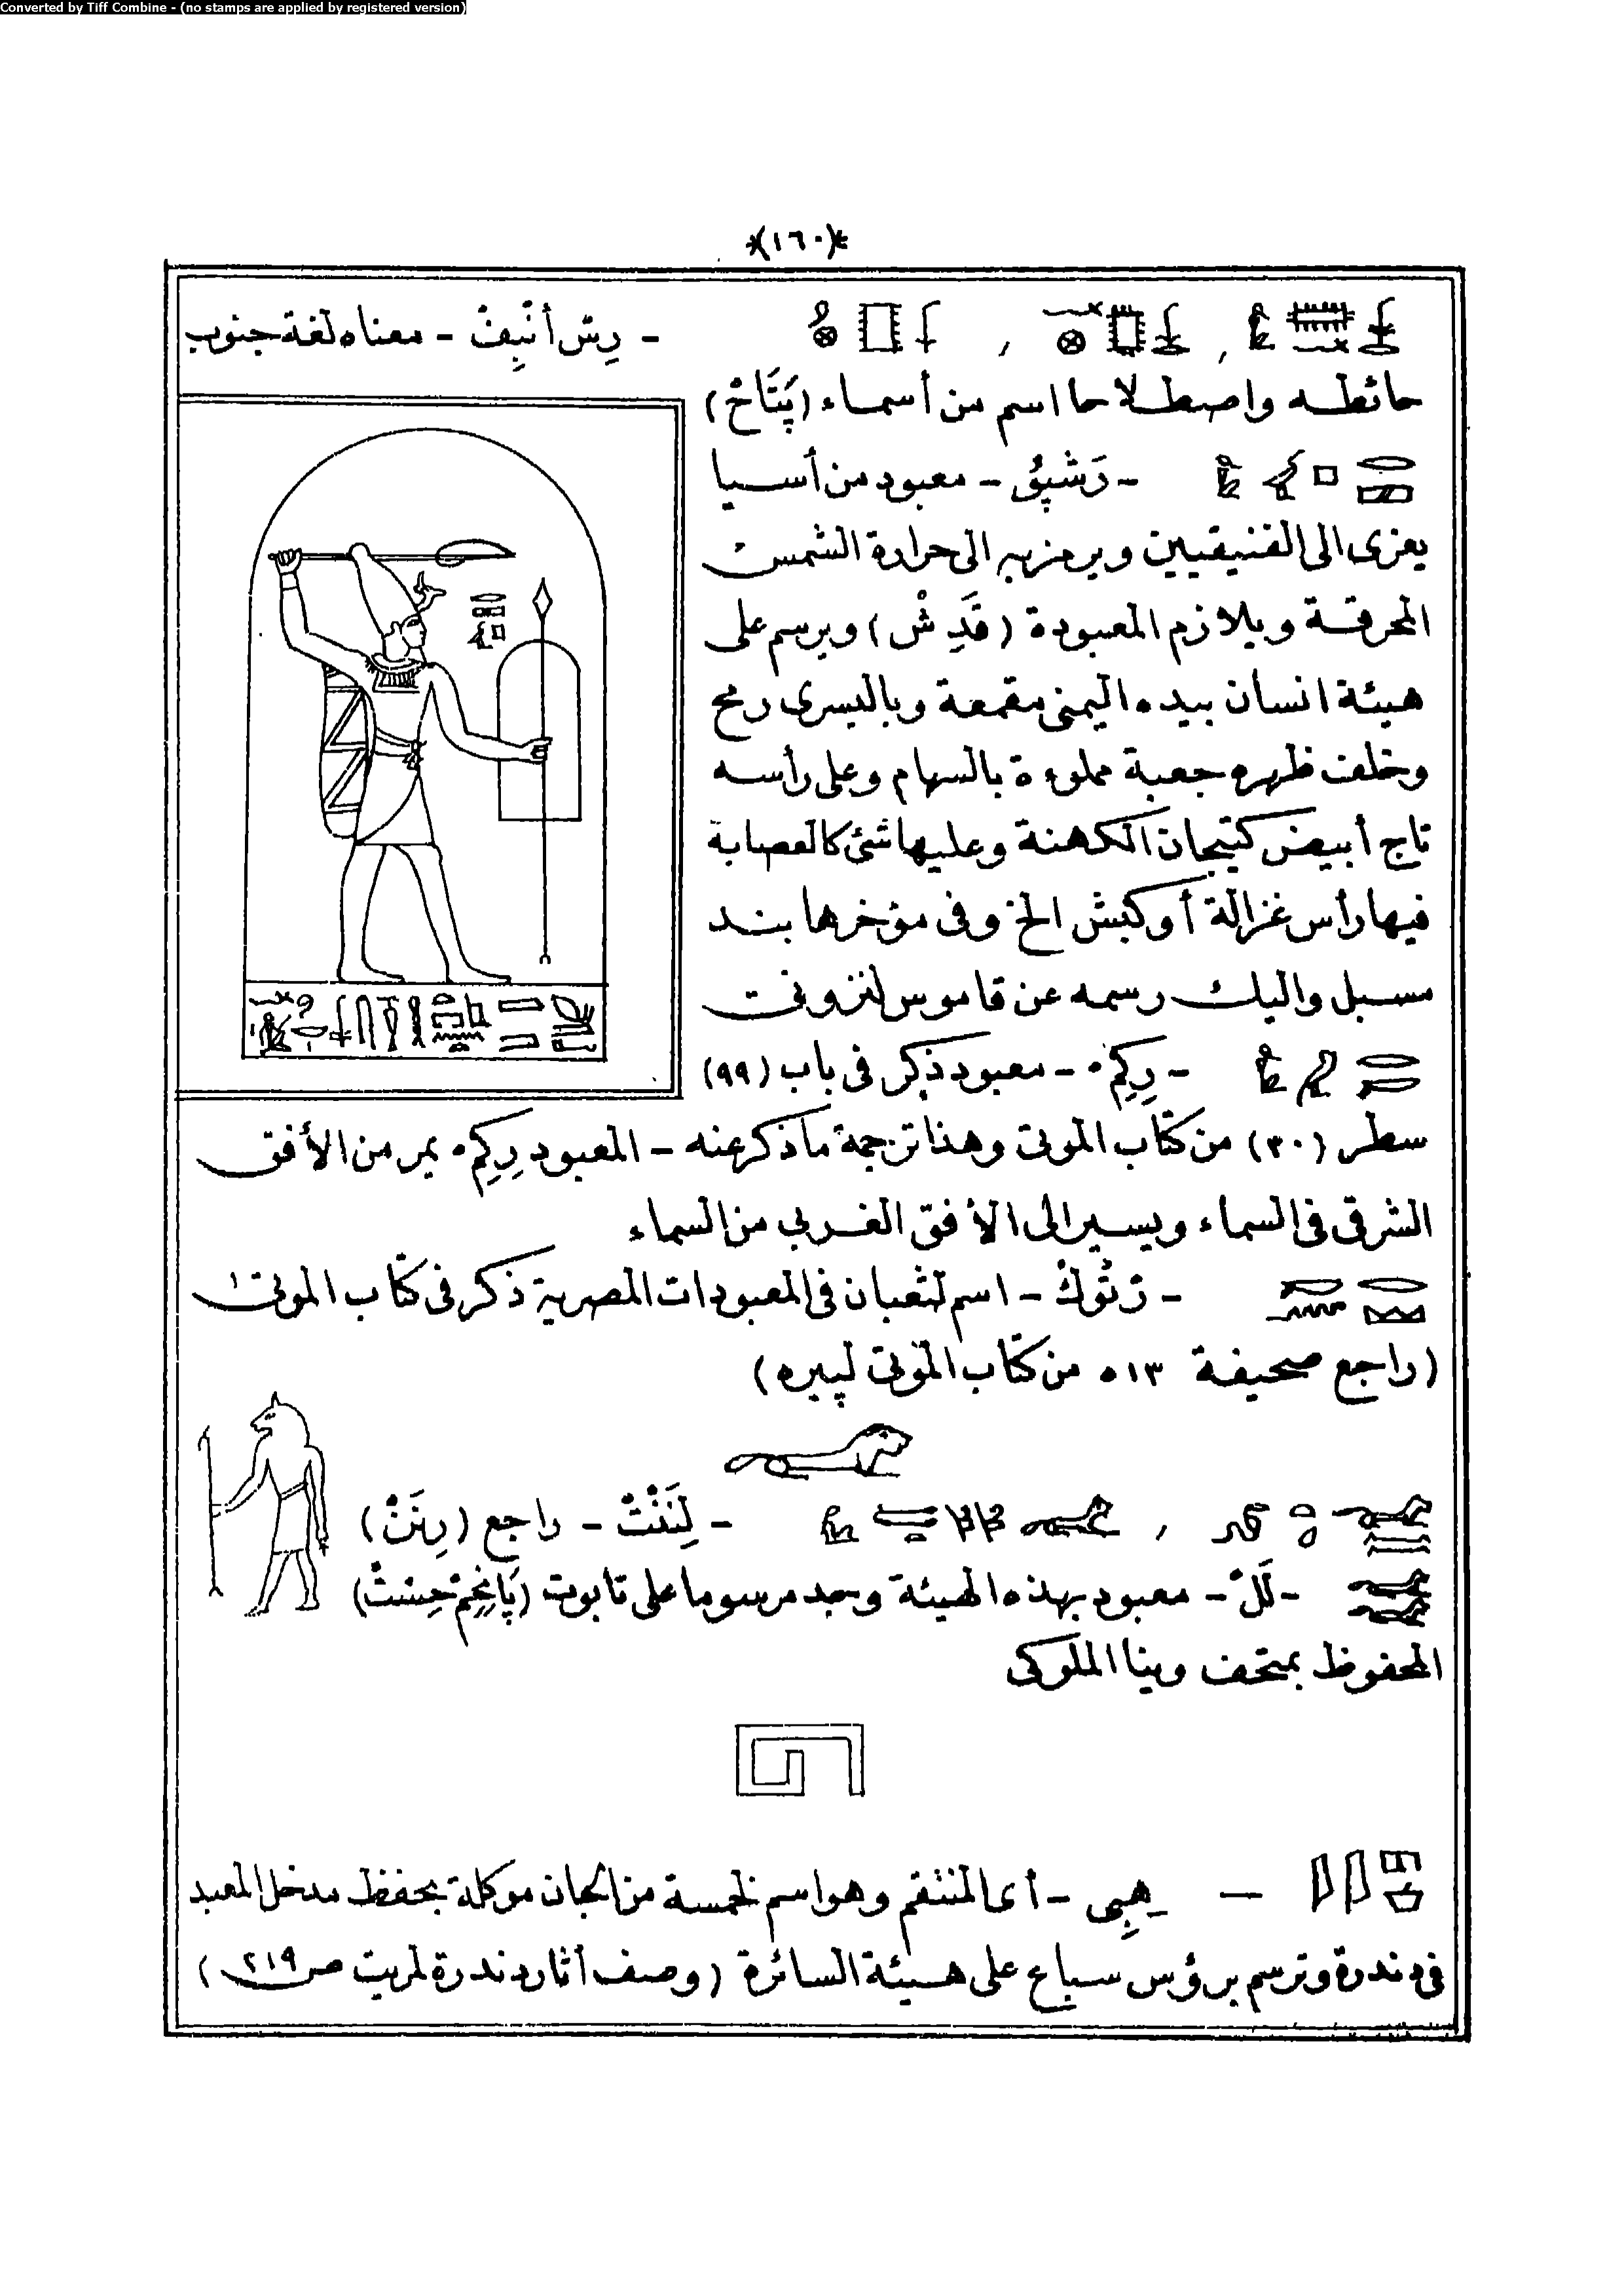 Converted by Tiff Combine - (no stamps are applied by registered version)
*(١٦٠)*
- رِسّ أنْبِفْ - معناه لغة جنوب
حائطه واصطلاحا اسم من أسماء (پَتَاحْ)
- رَشْپُ - معبود من أسيا
يعزى الى الفنيقيين ويرمز به الى حرارة الشمس
المحرقة ويلازم المعبودة (قَدِشْ) ويرسم على
هيئة انسان بيده اليمنى مقمعة وباليسرى رمح
وخلف ظهره جعبة مملوءة بالسهام وعلى رأسه
تاج أبيض كتيجان الكهنة وعليها شئ كالعصابة
فيها رأس غزالة أو كبش الخ وفى مؤخرها بند
مسبل واليك رسمه عن قاموس لنزونى
- رِكِمْ - معبود ذكر فى باب (٩٩)
سطر (٣٠) من كتاب الموتى وهذا ترجمة ماذكر عنه - المعبود رِكِمْ يمر من الأفق
الشرقى فى السماء ويسير الى الأفق الغربى من السماء
- اسم لثعبان فى المعبودات المصرية ذكر فى كتاب الموتى
(راجع صحيفة ٥١٣ من كتاب الموتى لپيره)
- لِنَنْتْ - راجع (رِنَنْ)
- لَلْ - معبود بهذه الهيئة وجد مرسوما على تابوت
المحفوظ بمتحف وينا الملوكى
— هِبِى - أى المنتقم وهو اسم لخمسة من الجان موكلة بحفظ مدخل المعبد
فى دندرة وترسم برؤس سباع على هيئة السائرة (وصف أثار دندرة لمريت ص ٢١٩)